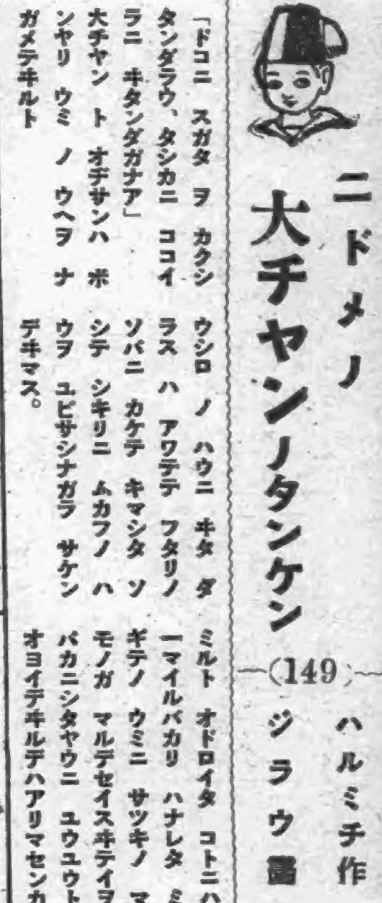 ニドメノ
大チャンノタンケン
(149)
ハルミチ作
ジラウ画
「ドコニ スガタ ヲ カクシ
タンダラウ、タシカニ ココイ
ラニ ヰタンダガナア」
大チャン ト オヂサンハ ボ
ンヤリ ウミ ノ ウヘヲ ナ
ガメテヰルト
ウシロ ノ ハウニ ヰタ ダ
ラス ハ アワテテ フタリノ
ソバニ カケテ キマシタ ソ
シテ シキリニ ムカフノ ハ
ウヲ ユビサシナガラ サケン
デヰマス。
ミルト オドロイタ コトニハ
一マイルバカリ ハナレタ ミ
ギテノ ウミニ サツキノ マ
モノガ マルデセイスヰテイヲ
バカニシタヤウニ ユウユウト
オヨイデヰルデハアリマセンカ